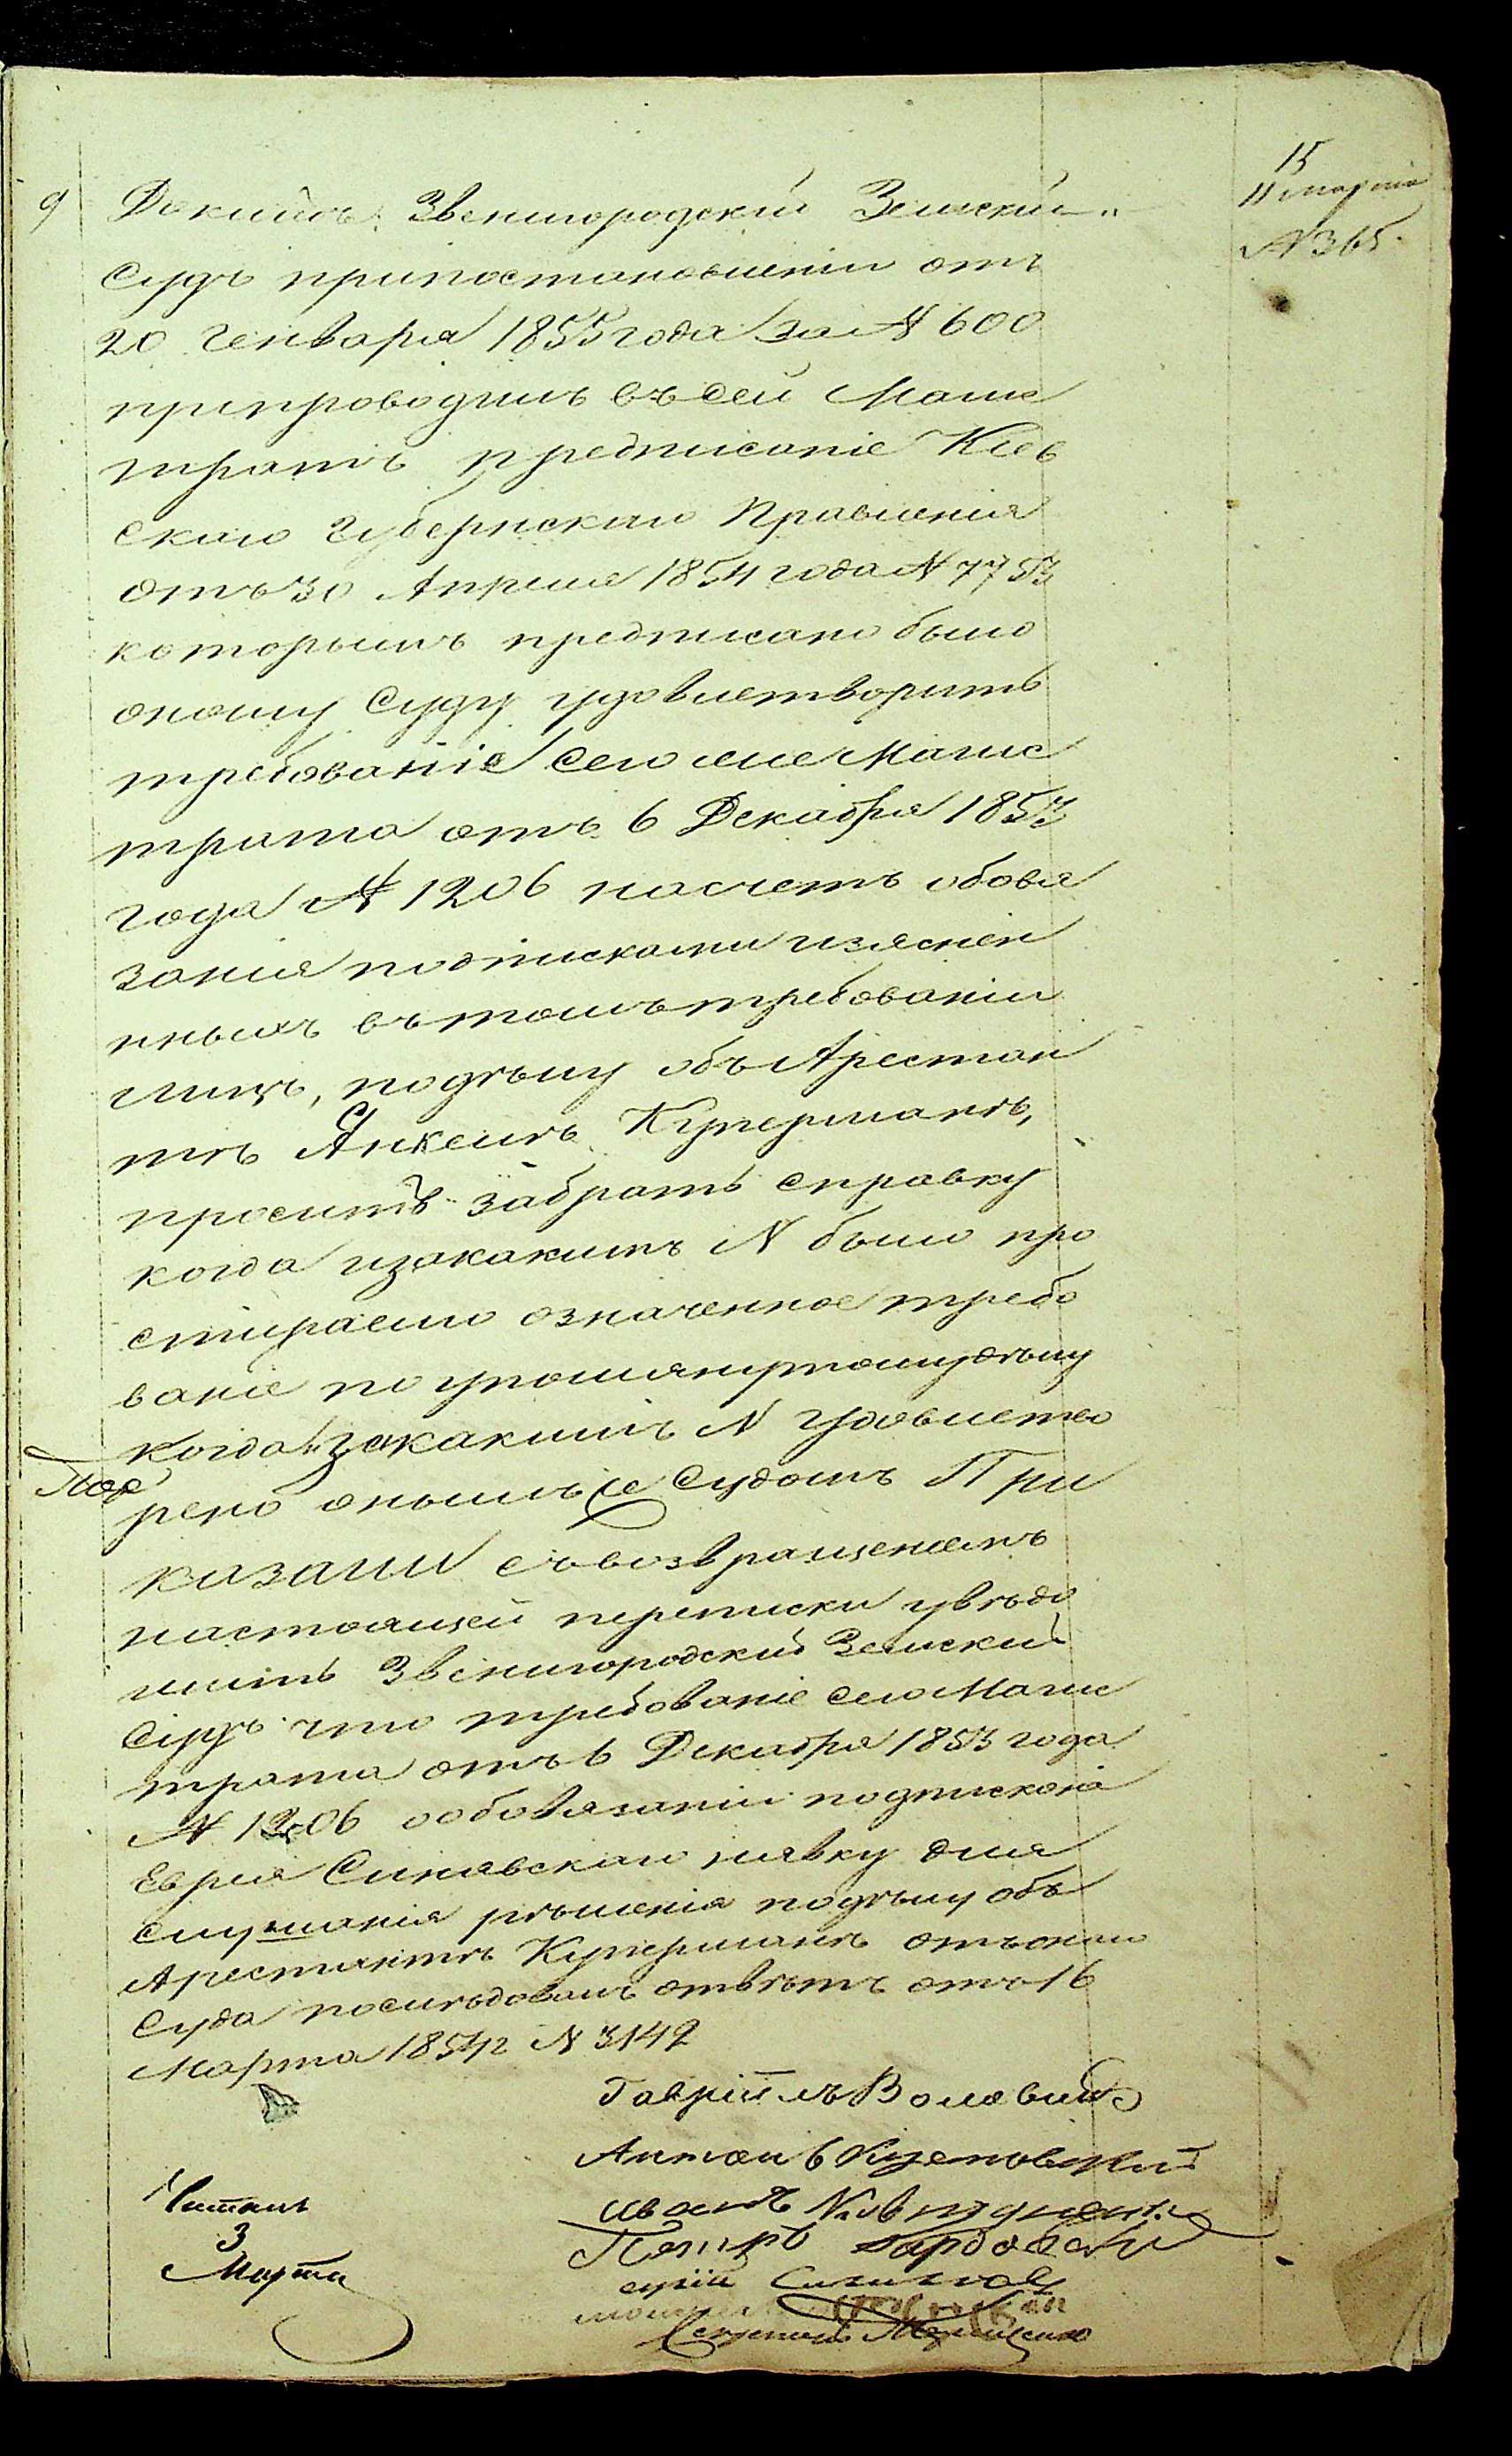 15
11 марта
N 365.
9
Звенигородскій Земскій
Судъ припостановленіи отъ
20 Генваря 1855 года за N 600
припроводилъ въ сей Магис
тратъ предписаніе Кіев
скаго Губернскаго Правленія
отъ 30 Апреля 1854 года N 7753
которымъ предписано было
оному Суду удовлетворить
требованіе сего же Магис
трата отъ 6 Декабря 1853
года N 1206 насчетъ обовя
занія подписками изяснен
ныхъ въ томъ требованіи
лицъ, подѣлу объ Арестан
тѣ Янкелѣ Куперманѣ,
проситъ забрать справку
когда изакакимъ N было про
стираемо означенное требо
ваніе по упомянутому дѣлу
когда изакакимъ N удовлетво
рено онымъ же Судомъ При
казали съ возвращеніемъ
настоящей переписки увѣдо
мить Звенигородскій Земскій
Судъ что требованіе сего Магис
трата отъ 6 Декабря 1853 года
N 1206 о обовязаніи подпискою
Еврея Синявскаго наявку для
слушанія рѣшенія подѣлу объ
Арестантѣ Куперманѣ отъ онаго
Суда послѣдовалъ отвѣтъ отъ 16
Марта 1854 г N 3142
Гавріилъ
Антонъ
Читалъ
3
Марта
Иванъ
Петръ